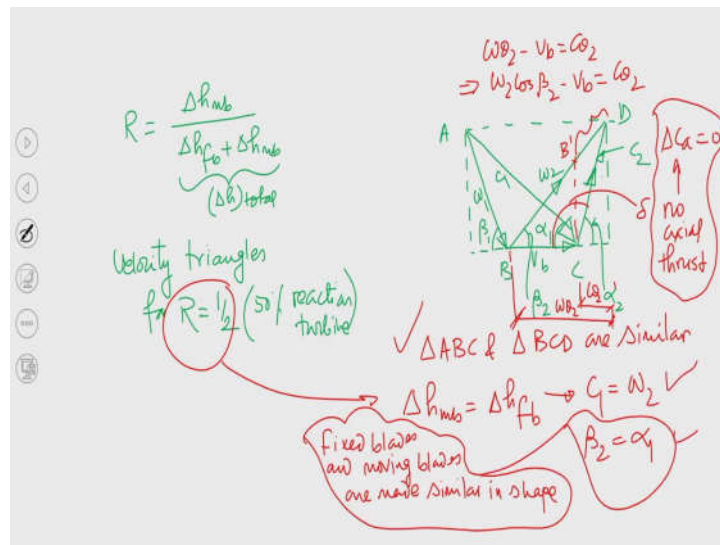 R = Δh_mb / (Δh_fb + Δh_mb)
(Δh)total
Velocity triangles
for R = 1/2 (50% reaction
turbine)
ωθ2 - Vb = Cθ2
⇒ ω2 Cos β2 - Vb = Cθ2
A
D
B'
C1
ω2
C2
ω1
β1
α1
δ
B
Vb
C
β2
ωθ2
Cθ2
α2
ΔCa = 0
↑
no
axial
thrust
✓ ΔABC & ΔBCD are similar
Δh_mb = Δh_fb → C1 = ω2 ✓
β2 = α1
fixed blades
and moving blades
are made similar in shape